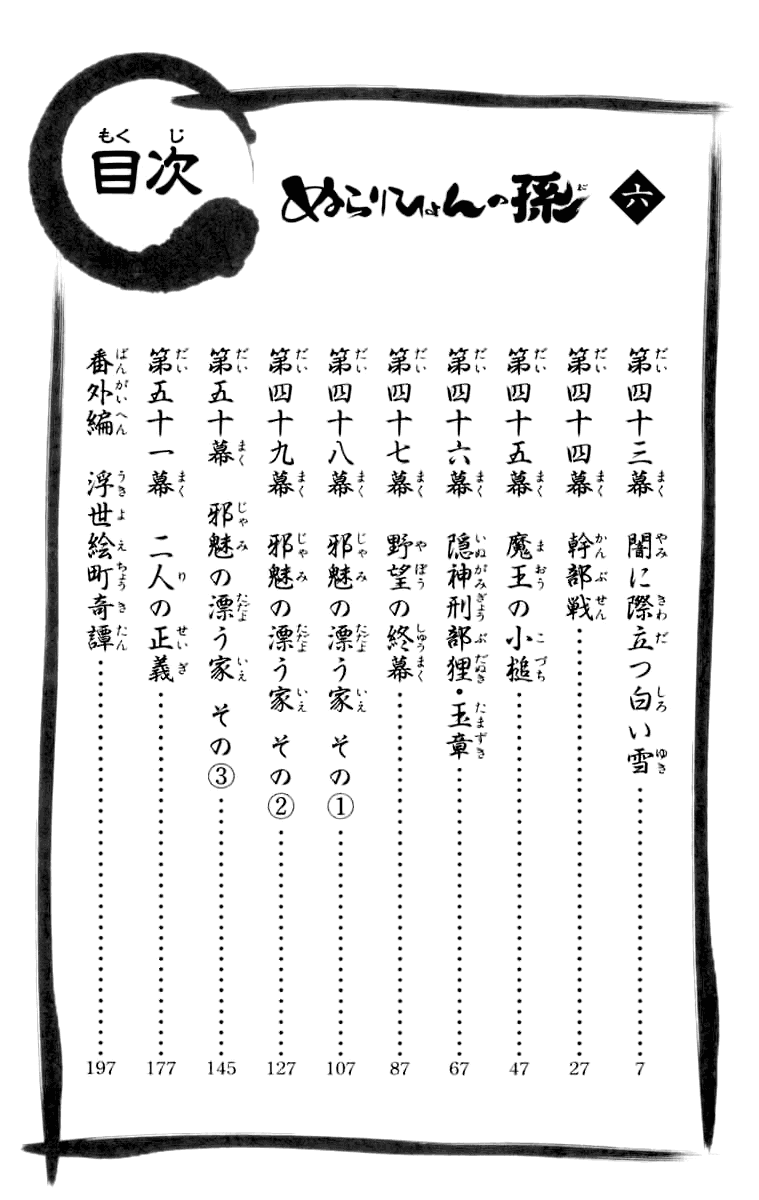 目次
ぬらりひょんの孫 六
第四十三幕 闇に際立つ白い雪……7
第四十四幕 幹部戦……27
第四十五幕 魔王の小槌……47
第四十六幕 隠神刑部狸・玉章……67
第四十七幕 野望の終幕……87
第四十八幕 邪魅の漂う家 その①……107
第四十九幕 邪魅の漂う家 その②……127
第五十幕 邪魅の漂う家 その③……145
第五十一幕 二人の正義……177
番外編 浮世絵町奇譚……197